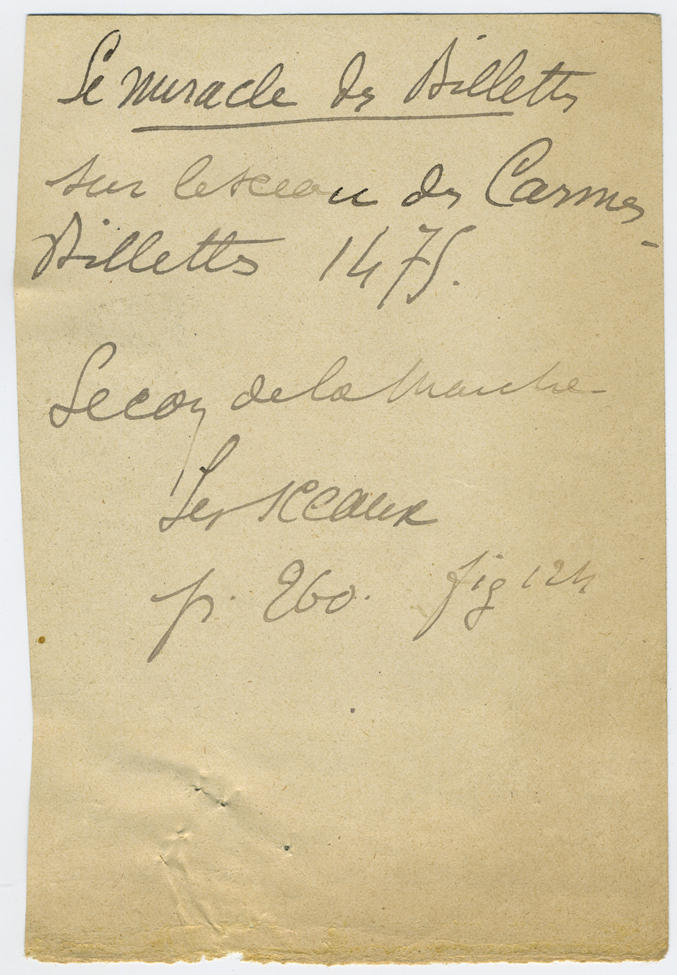 Le miracle des Billettes
sur le sceau des Carmes-
Billettes 1475.
Lecoy de la Marche
Les sceaux
p. 260. fig 124